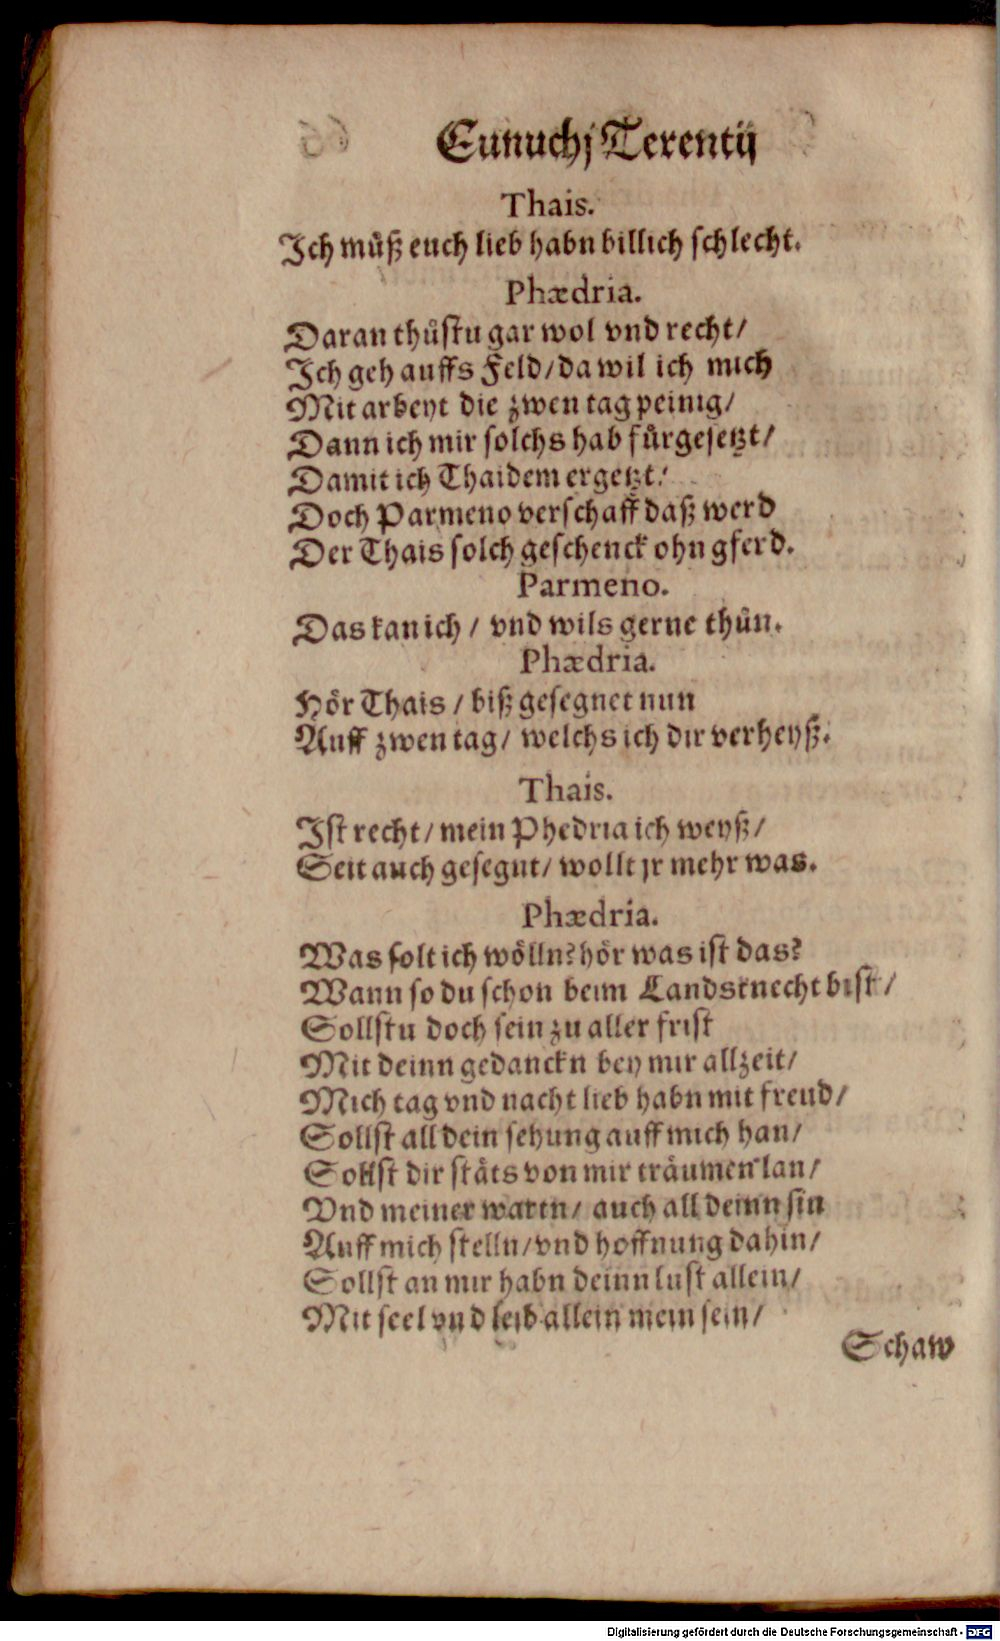 Eunuchj Terentij
Thais.
Ich muͦß euch lieb habn billich schlecht.
Phædria.
Daran thuͦstu gar wol vnd recht/
Ich geh auffs Feld/ da wil ich mich
Mit arbeyt die zwen tag peinig/
Dann ich mir solchs hab fuͤrgesetzt/
Damit ich Thaidem ergetzt/
Doch Parmeno verschaff daß werd
Der Thais solch geschenck ohn gferd.
Parmeno.
Das kan ich / vnd wils gerne thuͦn.
Phædria.
Hoͤr Thais / biß gesegnet nun
Auff zwen tag/ welchs ich dir verheyß.
Thais.
Ist recht/ mein Phedria ich weyß/
Seit auch gesegnt/ wollt jr mehr was.
Phædria.
Was solt ich woͤlln? hoͤr was ist das?
Wann so du schon beim Landsknecht bist/
Sollstu doch sein zu aller frist
Mit deinn gedanckn bey mir allzeit/
Mich tag vnd nacht lieb habn mit freud/
Sollst all dein sehung auff mich han/
Sollst dir staͤts von mir traͤumen lan/
Vnd meiner wartn/ auch all deinn sin
Auff mich stelln/ vnd hoffnung dahin/
Sollst an mir habn deinn lust allein/
Mit seel vnd leib allein mein sein/
Schaw
Digitalisierung gefördert durch die Deutsche Forschungsgemeinschaft - DFG